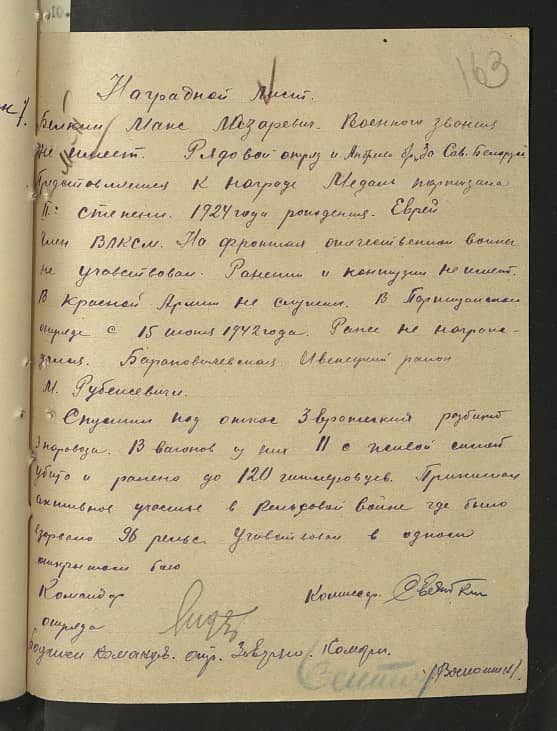 163
Наградной лист.
Белкин Макс Лазаревич. Военного звания
не имеет. Рядовой отряд и. Андреева бр. За Сов. Белорус
Предоставляется к награде Медаль партизана
II: степени. 1924 года рождения. Еврей
Член ВЛКСМ. На фронтах отечественной войны
не учавствовал. Ранений и контузий не имеет.
В Красной Армии не служил. В Партизанском
отряде с 15 июня 1942 года. Ранее не награж-
дался. Барановичевская Ивенецкий район
М. Рубежевичи.
Спустил под откос 3 вражеских разбито
3 паровоза. 13 вагонов из них 11 с живой силой
убито и ранено до 120 гитлеровцев. Принимал
активное участие в Рельсовой войне где было
взорвано 96 рельс. Учавствовал в одном
открытом бою
Командир Комиссар.
отряда